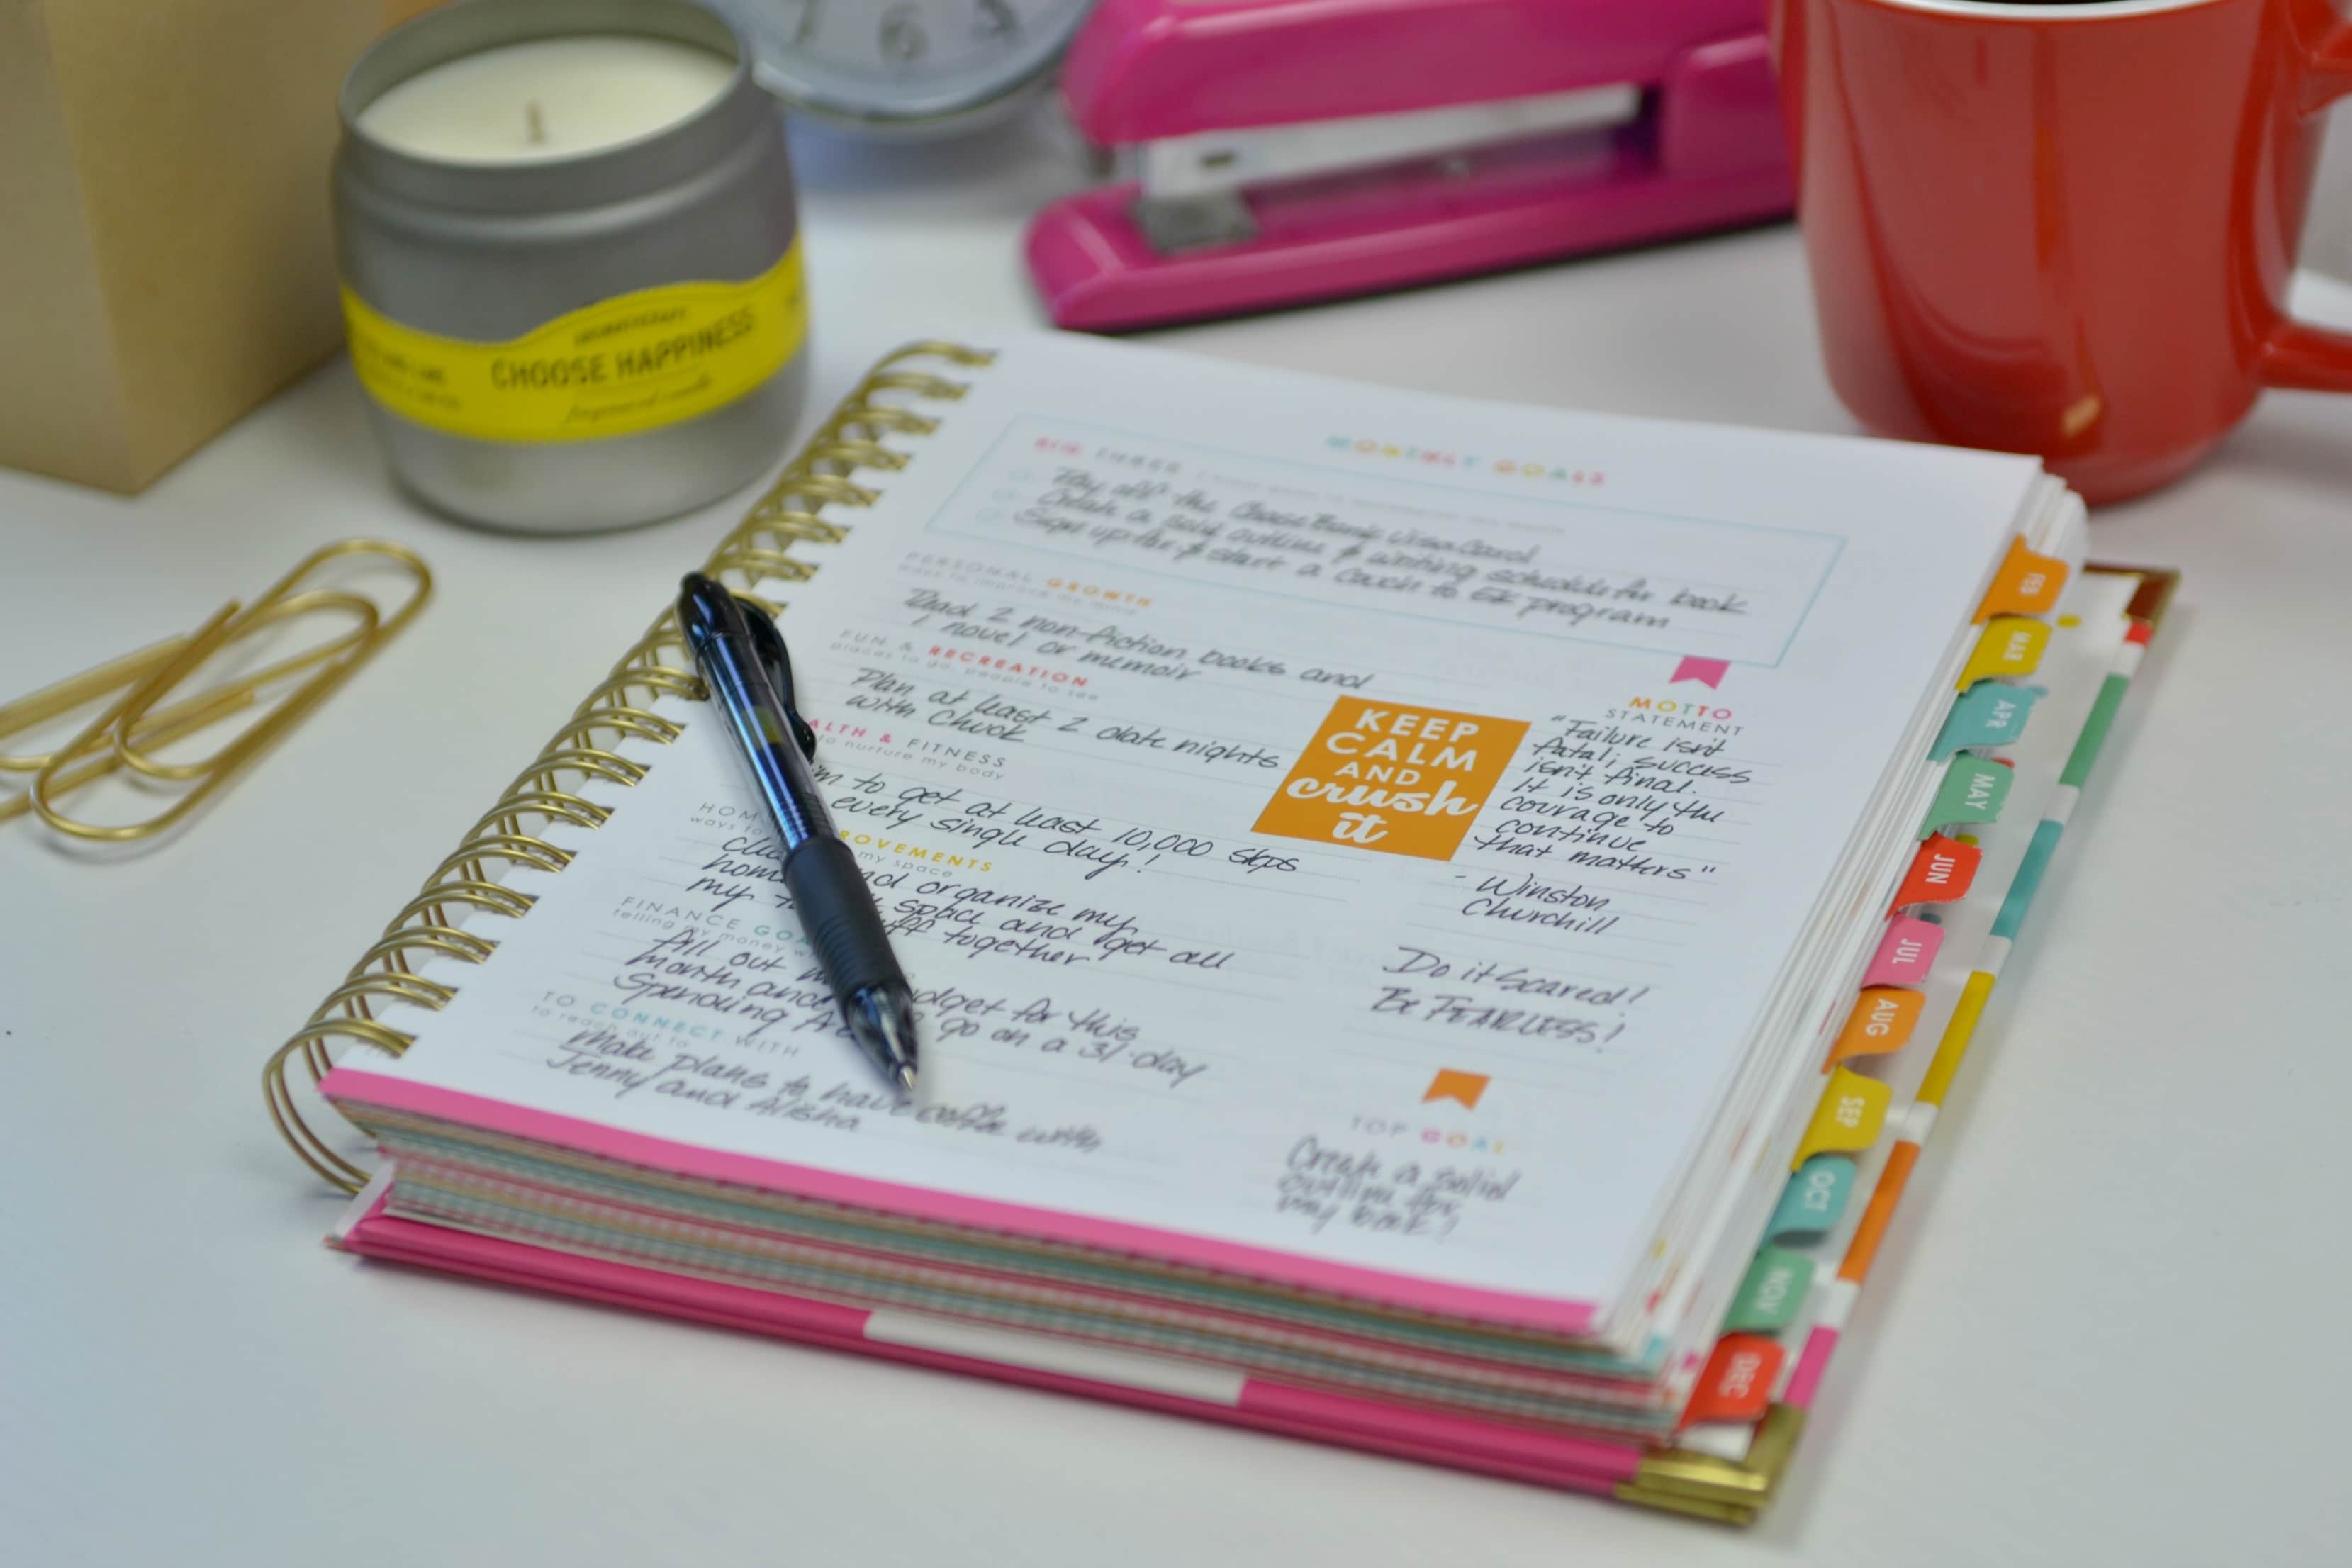 7 6 5
CHOOSE HAPPINESS
MONTHLY GOALS
BIG THREE
Pay off the Chase Bank Visa card
Create a solid outline & writing schedule for book
Sign up for & start a Couch to 5K program
PERSONAL GROWTH
ways to improve my mind
Read 2 non-fiction books and
1 novel or memoir
FUN & RECREATION
places to go, people to see
Plan at least 2 date nights
with Chuck
ALTH & FITNESS
to nurture my body
im to get at least 10,000 steps
every single day!
HOM ROVEMENTS
ways to my space
Cl nd organize my
hom space and get all
my together
FINANCE GOA
telling my money w
fill out m udget for this
month and go on a 31-day
Spending
TO CONNECT WITH
to reach out to
Make plans to have coffee with
Jenny and Alisha
KEEP
CALM
AND
crush
it
MOTTO
STATEMENT
"Failure isn't
fatal; success
isn't final.
It is only the
courage to
continue
that matters"
- Winston
Churchill
Do it Scared!
Be FEARLESS!
TOP GOAL
Create a solid
outline for
my book!
FEB
MAR
APR
MAY
JUN
JUL
AUG
SEP
OCT
NOV
DEC